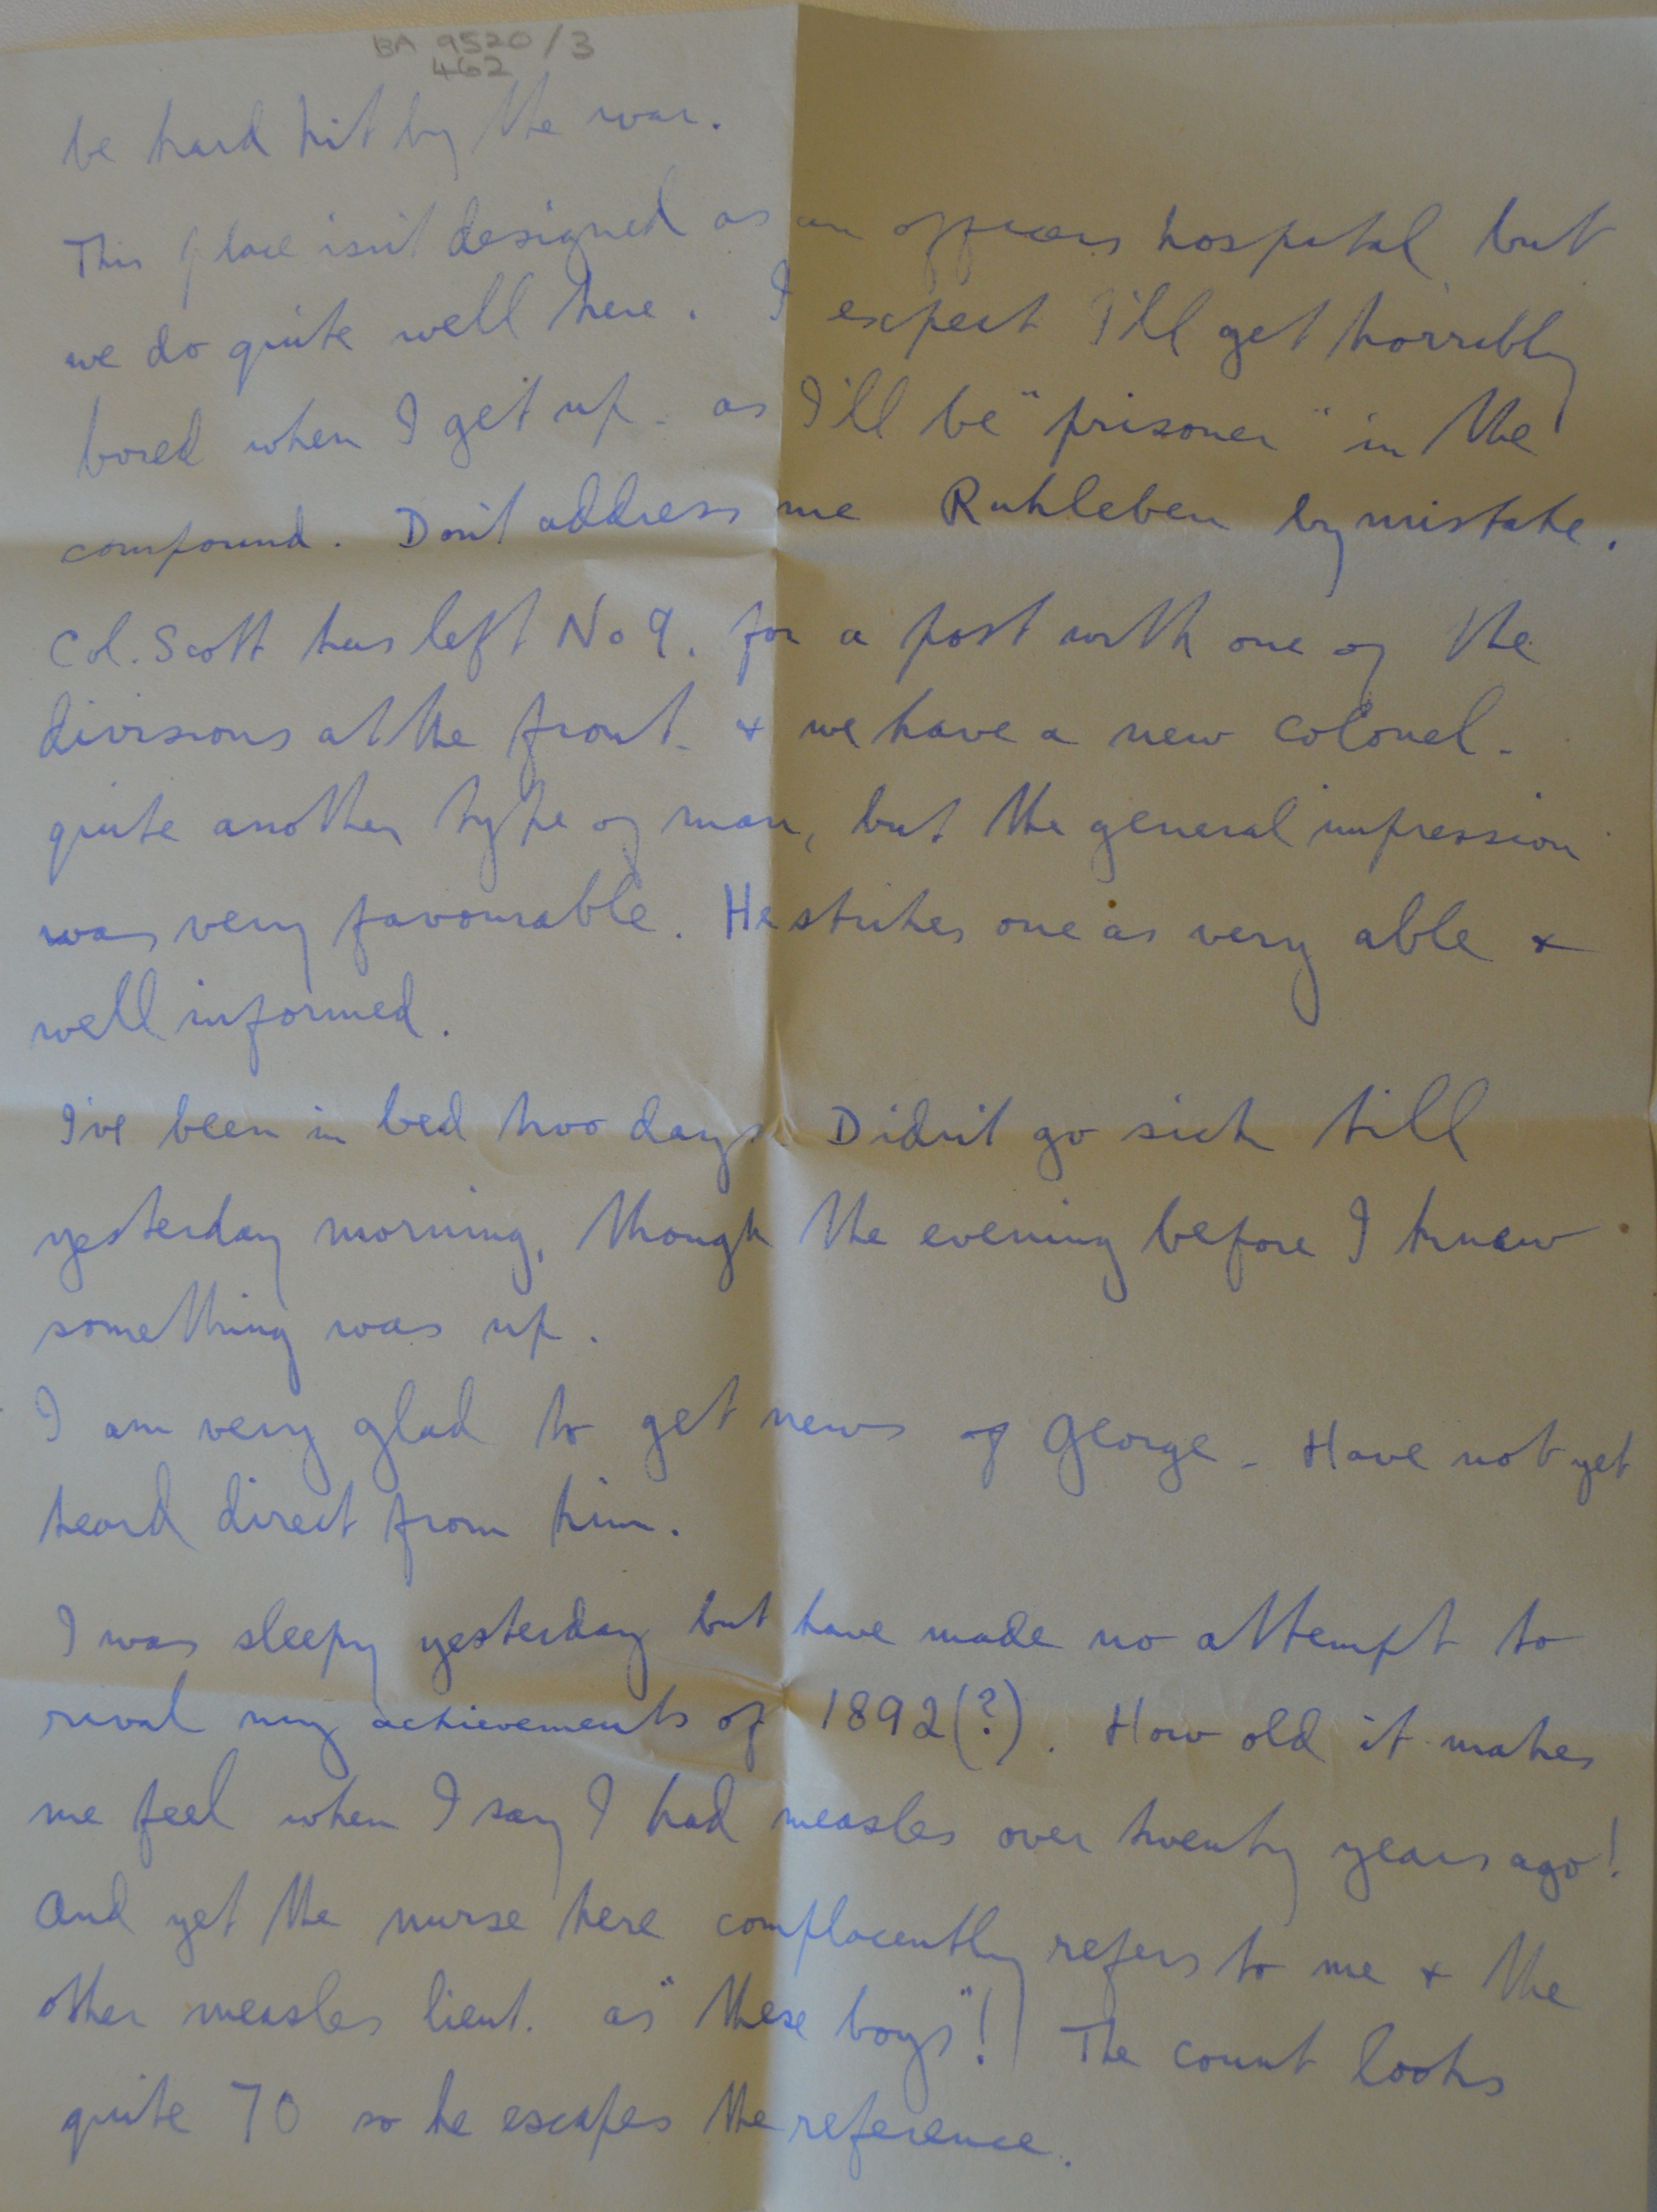 BA 9520/3
462
be hard hit by the war.
This place isn't designed as an officers hospital but
we do quite well here. I expect I'll get horribly
bored when I get up - as I'll be "prisoner" in the
compound. Don't address me Ruhleben by mistake.
Col. Scott has left No 9. for a post with one of the
divisions at the front - & we have a new colonel -
quite another type of man, but the general impression
was very favourable. He strikes one as very able &
well informed.
I've been in bed two days. Didn't go sick till
yesterday morning, though the evening before I knew
something was up.
I am very glad to get news of George - Have not yet
heard direct from him.
I was sleepy yesterday but have made no attempt to
rival my achievements of 1892(?). How old it makes
me feel when I say I had measles over twenty years ago!
And yet the nurse here complacently refers to me & the
other measles lieut. as "these boys"! The count looks
quite 70 so he escapes the reference.